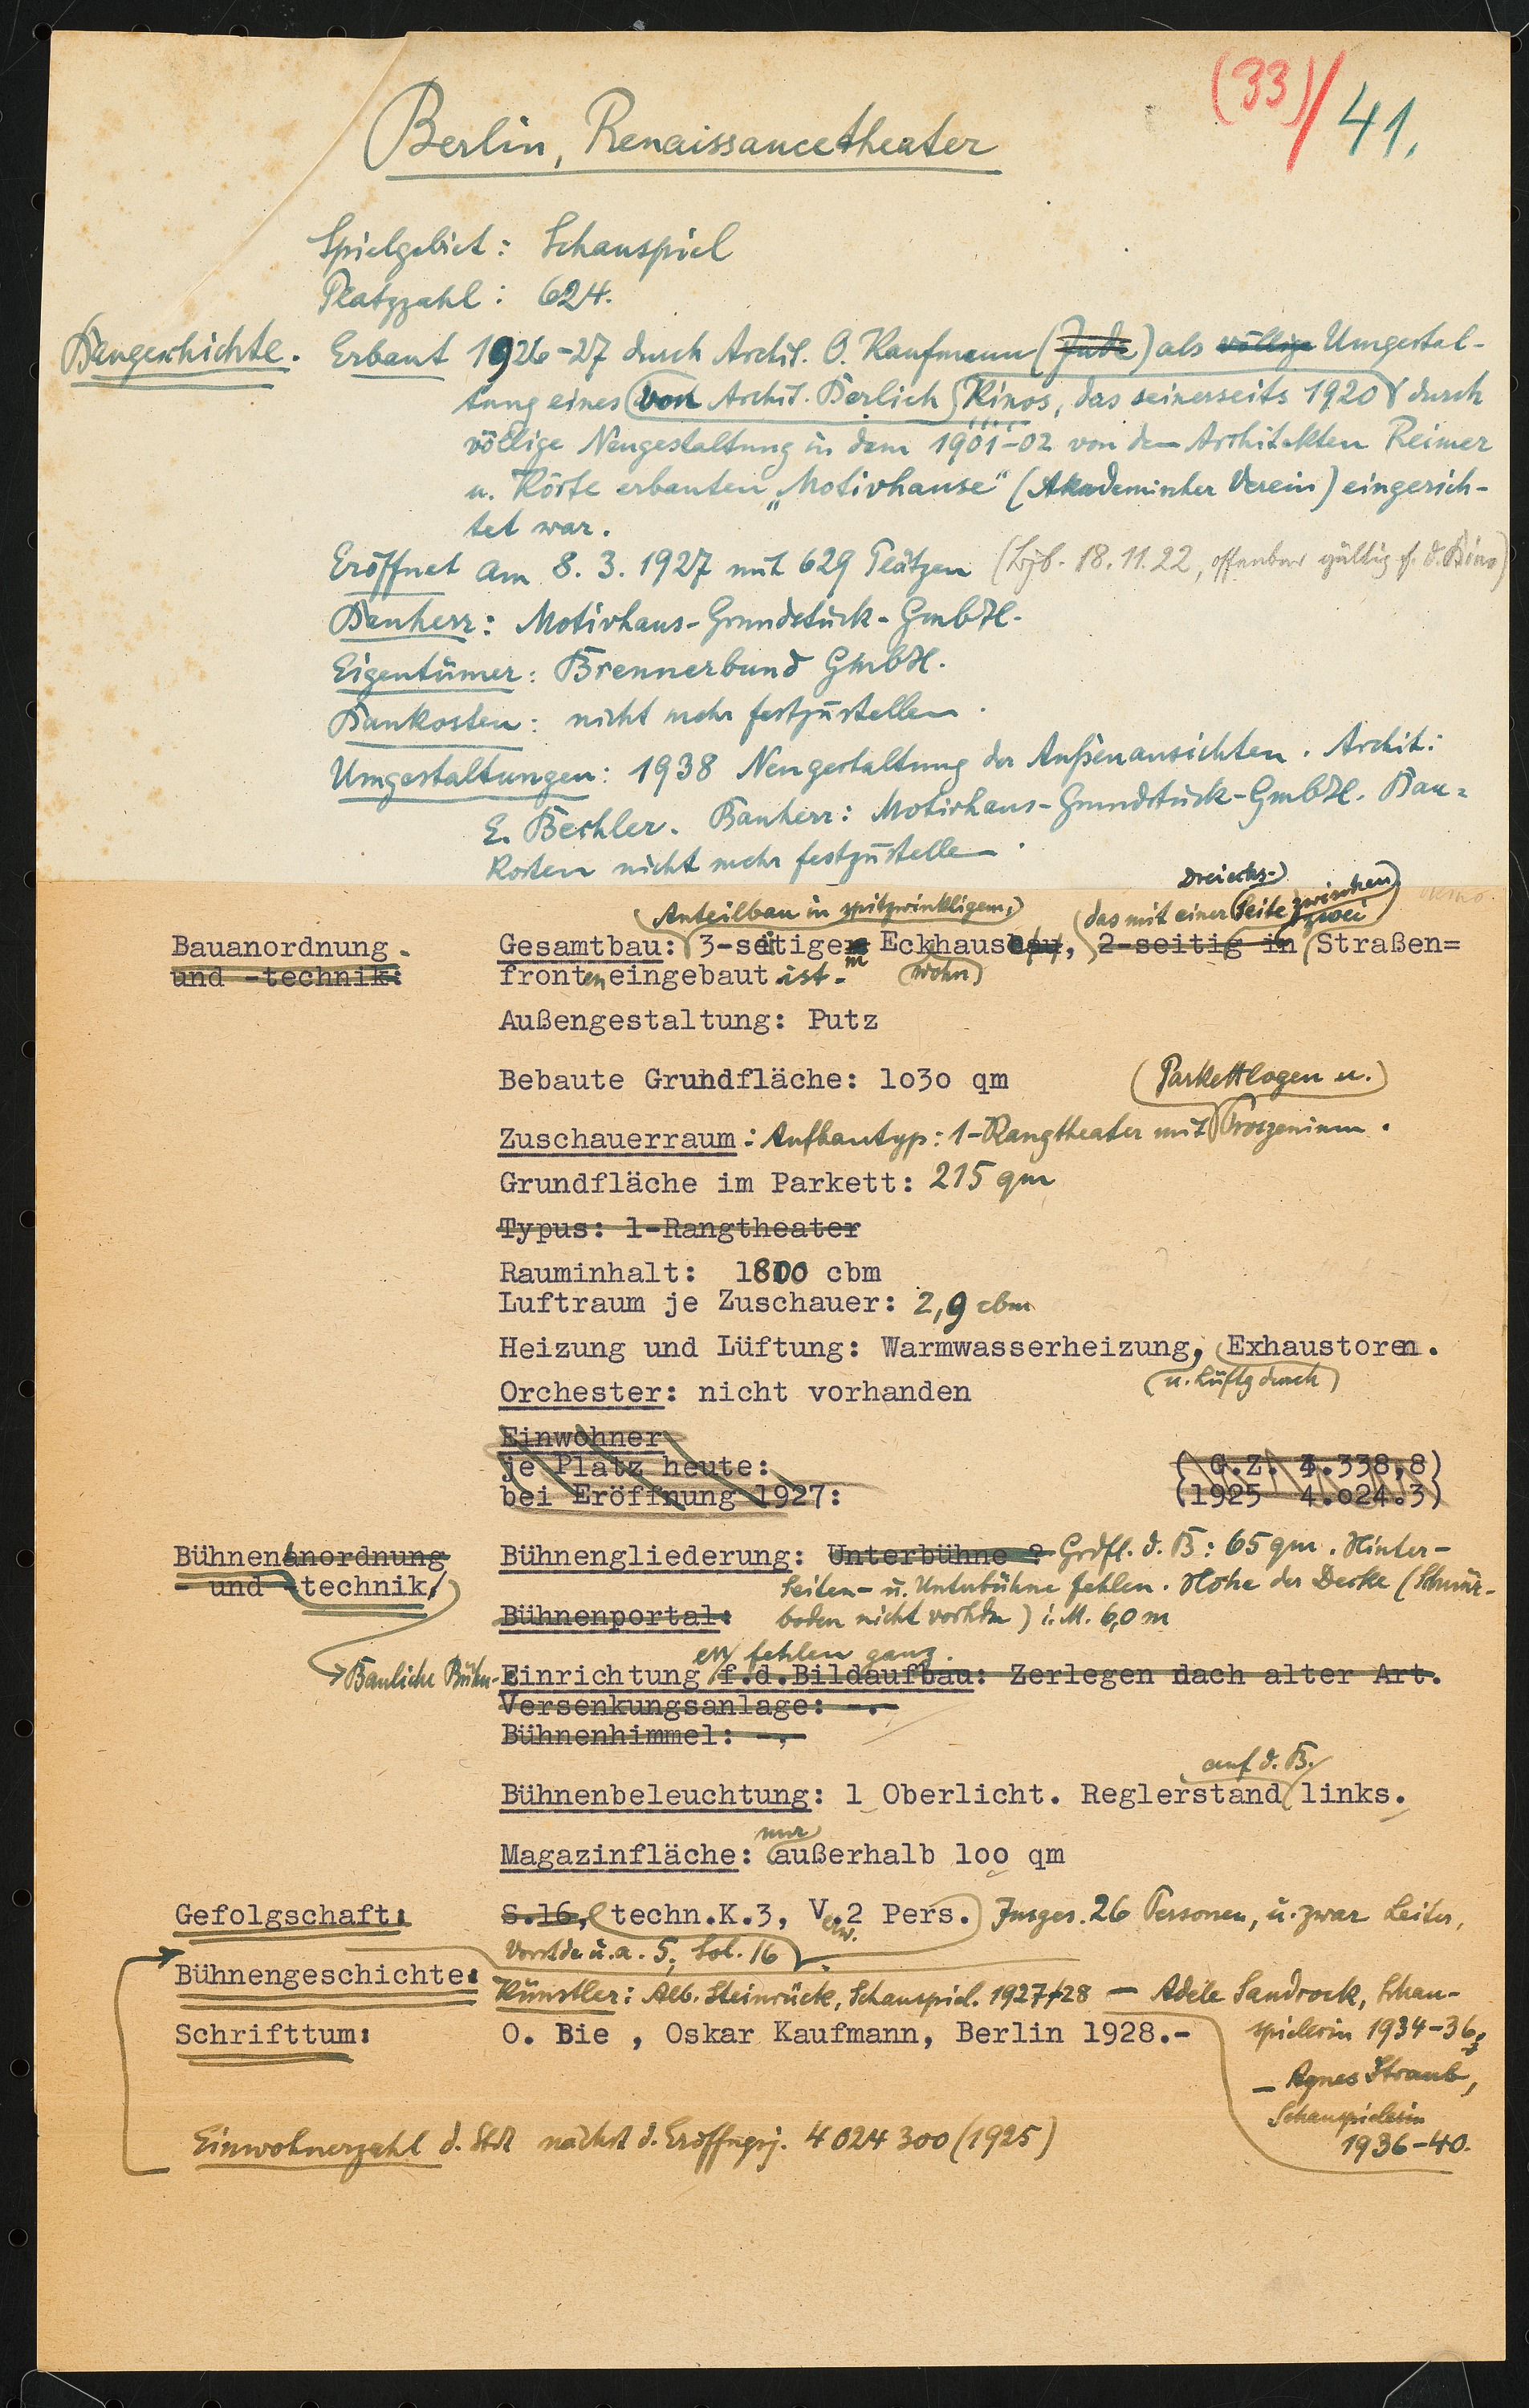 (33)/ 41.
Berlin, Renaissancetheater
Spielgebiet: Schauspiel
Platzzahl: 624.
Baugeschichte. Erbaut 1926-27 durch Archit. O. Kaufmann (Jude) als völlige Umgestal-
tung eines von Archit. Berlich Kinos, das seinerseits 1920 durch
völlige Neugestaltung in dem 1901-02 von den Architekten Reimer
u. Körte erbauten „Motivhause" (Akademischer Verein) eingerich-
tet war.
Eröffnet am 8. 3. 1927 mit 629 Plätzen (Bjb. 18.11.22, offenbar gültig f. d. Kino)
Bauherr: Motivhaus-Grundstück-GmbH.
Eigentümer: Brennerbund GmbH.
Baukosten: nicht mehr festzustellen.
Umgestaltungen: 1938 Neugestaltung der Außenansichten. Archit:
E. Bechler. Bauherr: Motivhaus-Grundstück-GmbH. Bau=
kosten nicht mehr festzustellen.
Dreiecks-
Anteilbau in spitzwinkligem, das mit einer Seite zwischen zwei
Bauanordnung. Gesamtbau: 3-seitigem Eckhaus, 2-seitig in Straßen=
und -technik: fronten eingebaut ist. wohn
Außengestaltung: Putz
Bebaute Grundfläche: 1o3o qm
Parkettlogen u.
Zuschauerraum: Aufbautyp: 1-Rangtheater mit Proszenium.
Grundfläche im Parkett: 215 qm
Typus: 1-Rangtheater
Rauminhalt: 1800 cbm
Luftraum je Zuschauer: 2,9 cbm
Heizung und Lüftung: Warmwasserheizung, Exhaustoren.
u. Lüftg durch
Orchester: nicht vorhanden
Einwohner
je Platz heute: ( G.Z. 4.338,8)
bei Eröffnung 1927: (1925 4.o24.3)
Bühnenanordnung Bühnengliederung: Unterbühne ? Grdfl. d. B: 65 qm. Hinter-
- und -technik Seiten- u. Unterbühne fehlen. Höhe der Decke (Schnür-
Bühnenportal: boden nicht vorhdn) i. M. 6,0 m
en fehlen ganz.
Bauliche Bühn- Einrichtung f.d.Bildaufbau: Zerlegen nach alter Art.
Versenkungsanlage: -.
Bühnenhimmel: -.
auf d. B.
Bühnenbeleuchtung: 1 Oberlicht. Reglerstand links.
nur
Magazinfläche: außerhalb 1oo qm
Gefolgschaft: S.16, techn.K.3, V.2 Pers. Insges. 26 Personen, u. zwar Leiter,
Vorstde u. a. 5, Sol. 16
Bühnengeschichte:
Künstler: Alb. Steinrück, Schauspiel. 1927/28 - Adele Sandrock, Schau-
spielerin 1934-36;
Schrifttum: O. Bie , Oskar Kaufmann, Berlin 1928.-
- Agnes Straub,
Schauspielerin
1936-40.
Einwohnerzahl d. Stdt nächst d. Eröffngsj. 4 024 300 (1925)